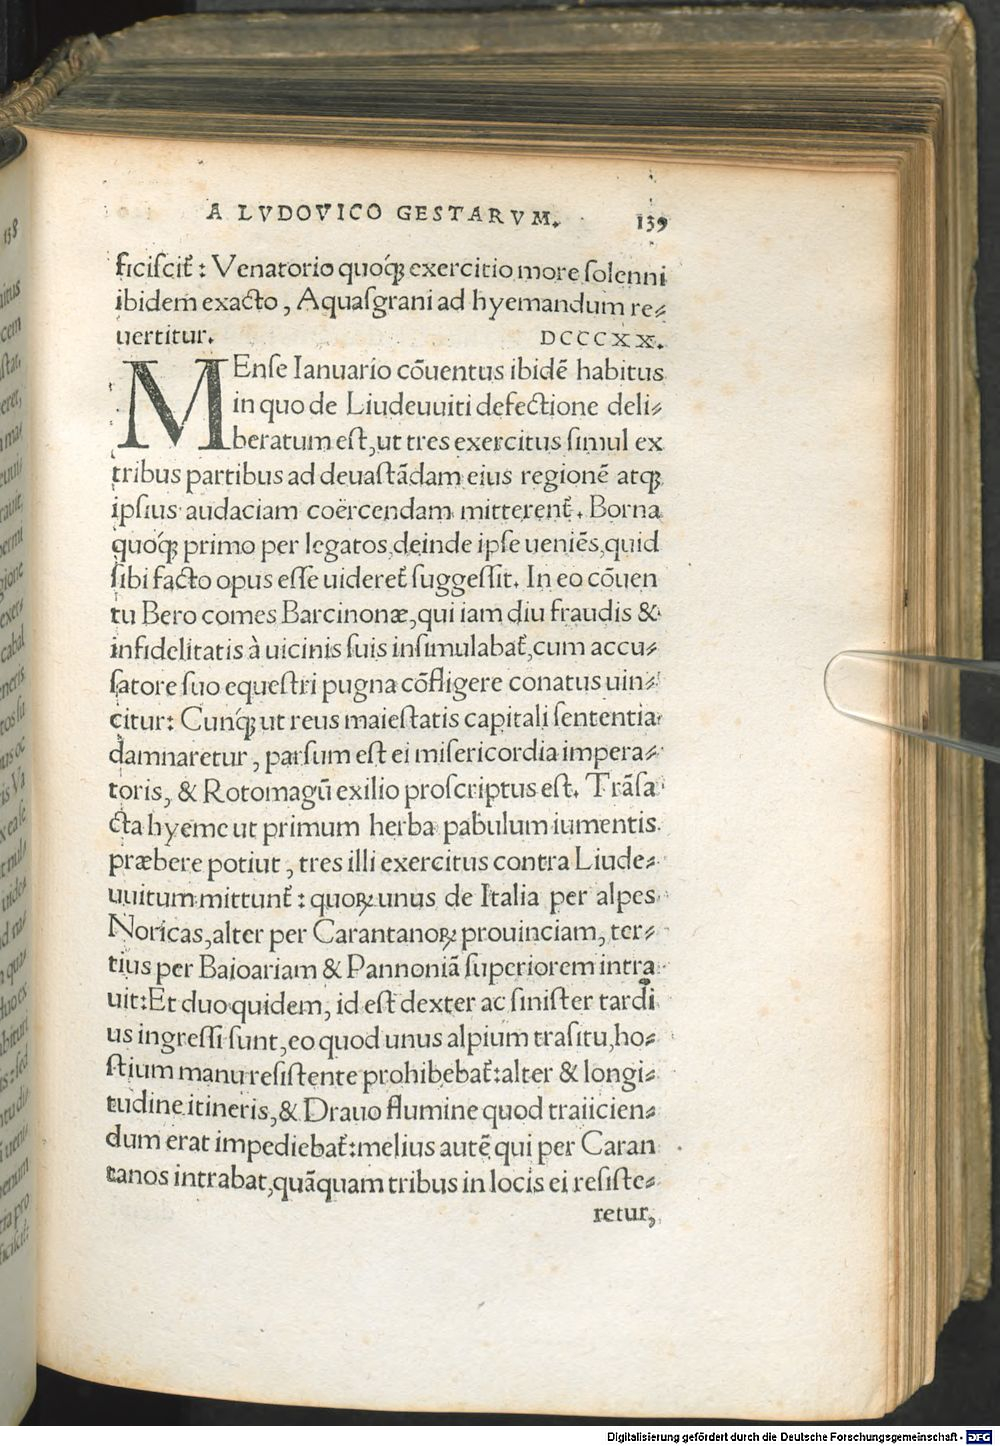 A LVDOVICO GESTARVM.
139
ficiſcit᷑: Venatorio quoq́ꝫ exercitio more ſolenni
ibidem exacto, Aquaſgrani ad hyemandum re⸗
uertitur. DCCCXX.
MEnſe Ianuario cõuentus ibidẽ habitus
in quo de Liudeuuiti defectione deli⸗
beratum eſt, ut tres exercitus ſimul ex
tribus partibus ad deuaſtãdam eius regionẽ atqꝫ
ipſius audaciam coërcendam mitterent᷑. Borna
quoq́ꝫ primo per legatos, deinde ipſe ueniẽs, quid
ſibi facto opus eſſe uideret᷑ ſuggeſſit. In eo cõuen
tu Bero comes Barcinonæ, qui iam diu fraudis &
infidelitatis à uicinis ſuis inſimulabat᷑, cum accu⸗
ſatore ſuo equeſtri pugna cõfligere conatus uin⸗
citur: Cunq́ꝫ ut reus maieſtatis capitali ſententia
damnaretur, parſum eſt ei miſericordia impera⸗
toris, & Rotomagũ exilio proſcriptus eſt. Trãſa
cta hyeme ut primum herba pabulum iumentis
præbere potiut, tres illi exercitus contra Liude⸗
uuitum mittunt᷑: quoꝝ unus de Italia per alpes
Noricas, alter per Carantanoꝝ prouinciam, ter⸗
tius per Baioariam & Pannoniã ſuperiorem intra
uit: Et duo quidem, id eſt dexter ac ſiniſter tardi
us ingreſſi ſunt, eo quod unus alpium traſitu, ho⸗
ſtium manu reſiſtente prohibebat᷑: alter & longi⸗
tudine itineris, & Drauo flumine quod traiicien⸗
dum erat impediebat᷑: melius autẽ qui per Caran
tanos intrabat, quãquam tribus in locis ei reſiſte⸗
retur,
138
Digitalisierung gefördert durch die Deutsche Forschungsgemeinschaft - DFG